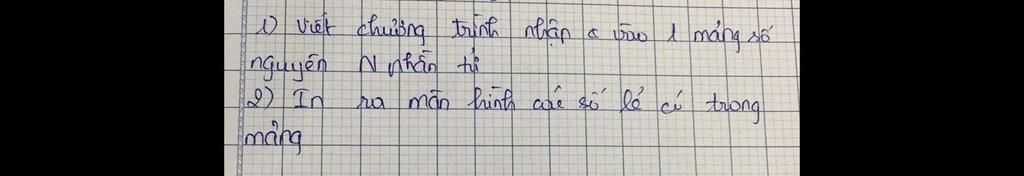 1) Viết chương trình nhập vào 1 mảng số
nguyên N phần tử
2) In ra màn hình các số lẻ có trong
mảng